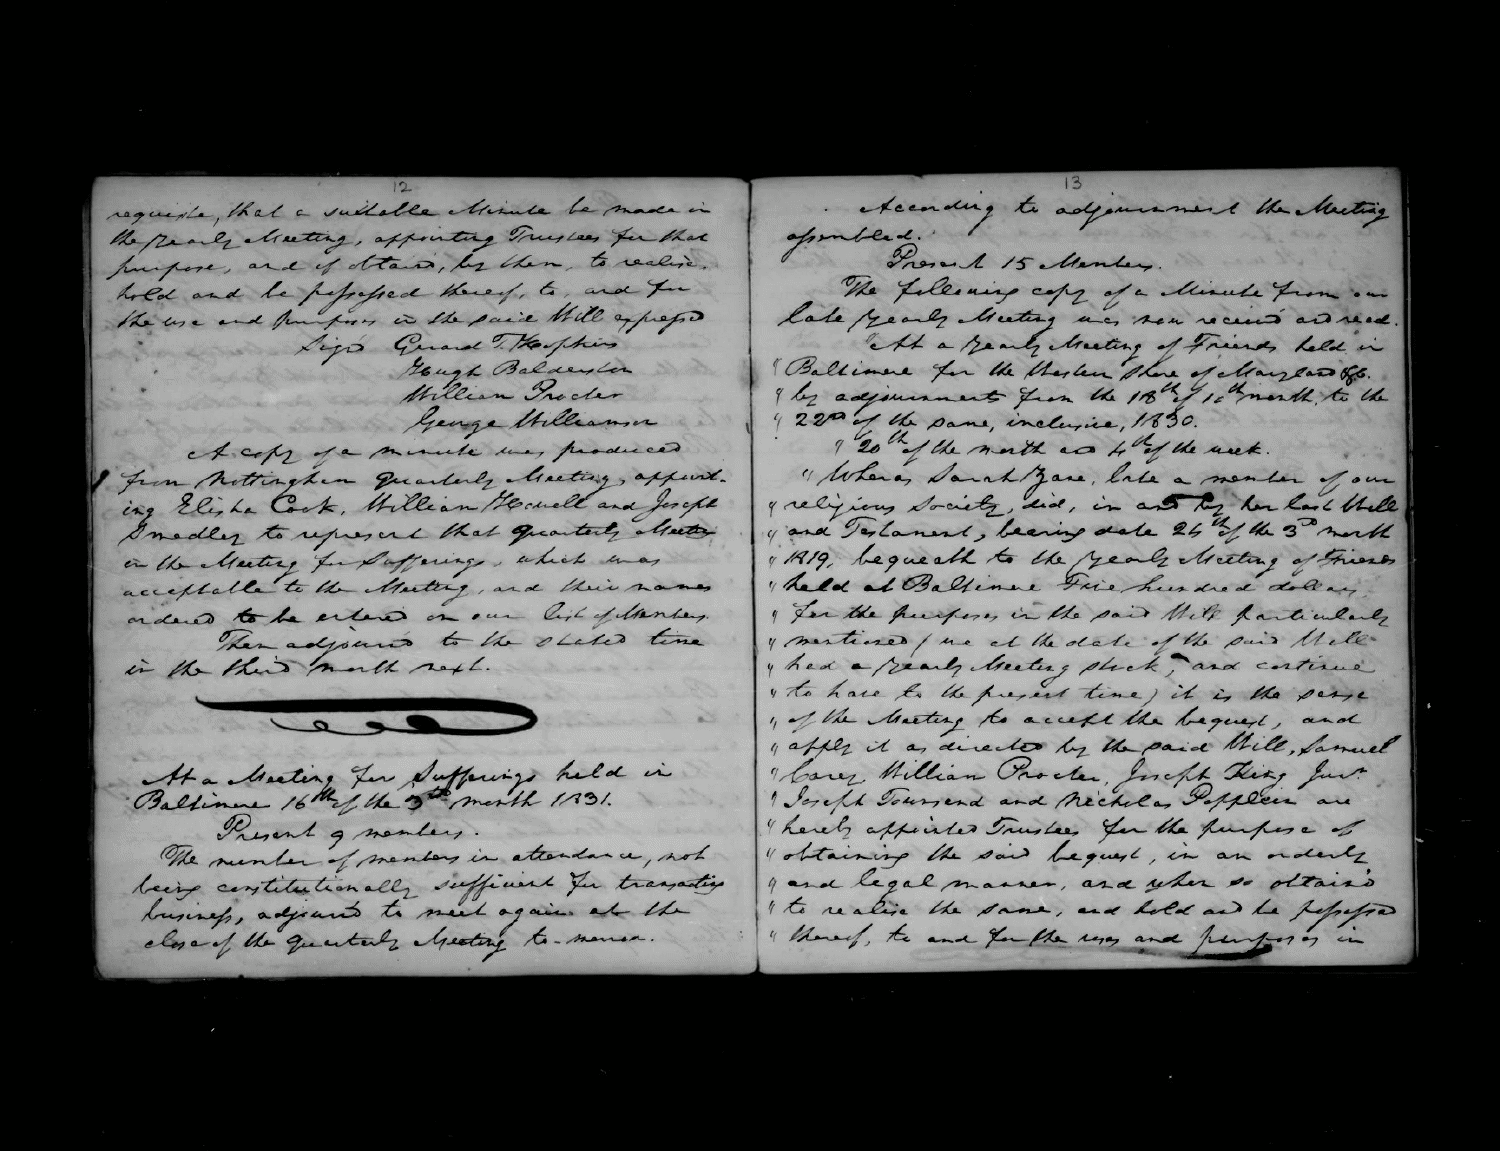 12
requisite, that a suitable Minute be made in
the Yearly Meeting, appointing Trustees for that
purpose, and if obtain'd, by them, to realise,
hold and be possessed thereof, to, and for
the use and purposes in the said Will express'd
Sign'd Gerard T. Hopkins
Hugh Balderston
William Procter
George Williamson
A copy of a minute was produced
from Nottingham Quarterly Meeting, appoint-
ing Elisha Cook, William Howell and Joseph
Smedley to represent that Quarterly Meeting
in the Meeting for Sufferings, which was
acceptable to the Meeting, and their names
ordered to be entered on our list of Members.
Then adjourn'd to the stated time
in the third month next.
At a Meeting for Sufferings held in
Baltimore 16th of the 3rd month 1831.
Present 9 members.
The number of members in attendance, not
being constitutionally sufficient for transacting
business, adjourn'd to meet again at the
close of the Quarterly Meeting to-morrow.
13
According to adjournment the Meeting
assembled.
Present 15 Members.
The following copy of a Minute from our
late Yearly Meeting was now receiv'd and read.
"At a Yearly Meeting of Friends held in
" Baltimore for the Western Shore of Maryland &c.
" by adjournments from the 18th of 10th month, to the
" 22nd of the same, inclusive, 1830.
" 20th of the month and 4th of the week.
" Whereas Sarah Zane, late a member of our
" religious Society, did, in and by her last Will
" and Testament, bearing date 24th of the 3rd month
" 1819, bequeath to the Yearly Meeting of Friends
" held at Baltimore Five hundred dollars,
" for the purposes in the said Will particularly
" mentioned (we at the date of the said Will
" had a Yearly Meeting stock, and continue
" to have to the present time) it is the sense
" of the Meeting to accept the bequest, and
" apply it as directed by the said Will, Samuel
" Carey, William Procter, Joseph King Junr.
" Joseph Townsend and Nicholas Popplein are
" hereby appointed Trustees for the purpose of
" obtaining the said bequest, in an orderly
" and legal manner, and when so obtain'd
" to realise the same, and hold and be possessed
" thereof, to and for the uses and purposes in